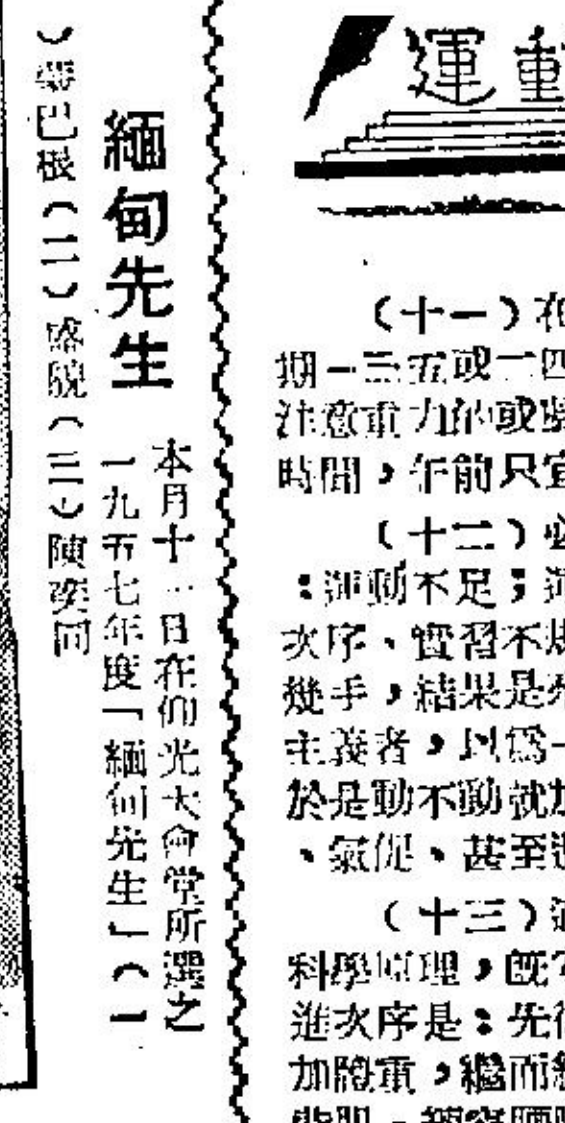 運動
（十一）在
期一三五或二四
注意重力的或
時間，午前只宜
（十二）必
：運動不足；
次序、實習不
幾手，結果是
主義者，以為一
於是動不動就加
、氣促、甚至
（十三）
科學原理，既
進次序是：先
加體重，繼而
緬甸先生
本月十一日在仰光大會堂所選之
一九五七年度「緬甸先生」（一
）巴根（二）貌（三）陳奕同